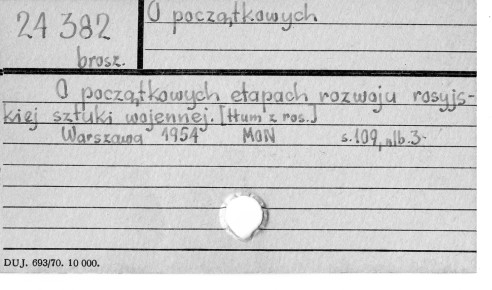 24 382
brosz.
O początkowych
O początkowych etapach rozwoju rosyjs-
kiej sztuki wojennej. [tłum z ros.]
Warszawa 1954 MON s.109, nlb.3
DUJ. 693/70. 10 000.